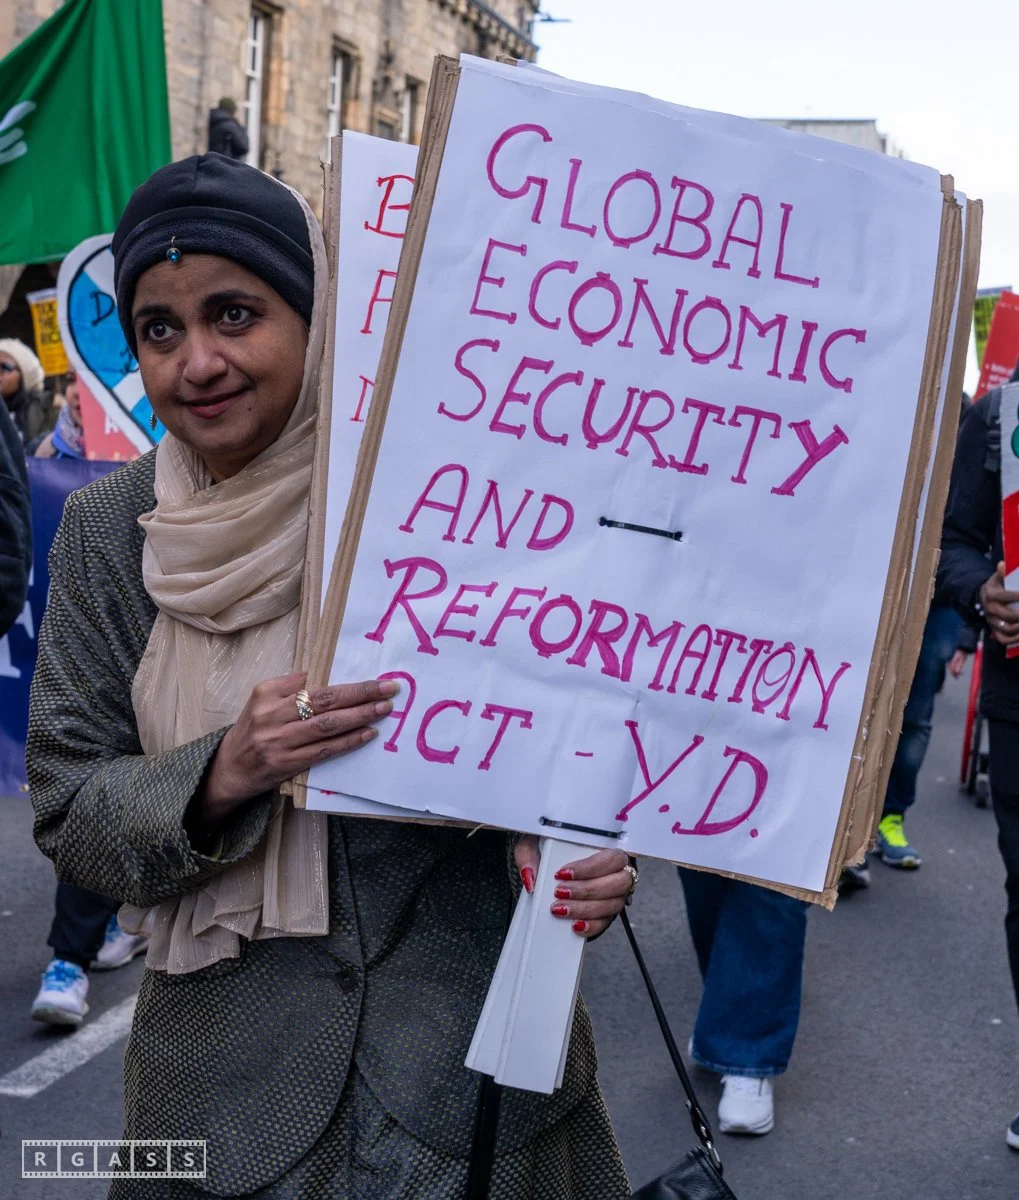 GLOBAL
ECONOMIC
SECURITY
AND -
REFORMATION
ACT - Y.D.
RGASS